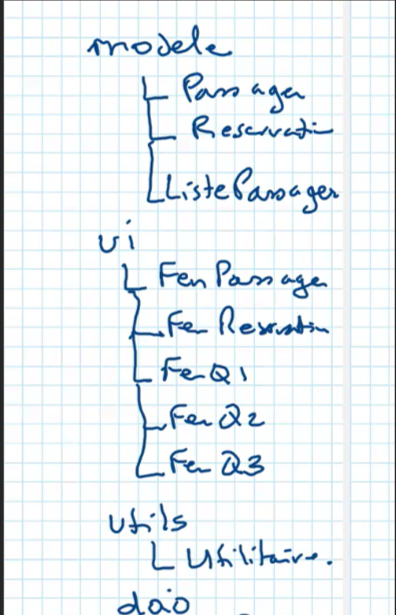 modele
Passager
Reservati
ListePassager
ui
Fen Passager
Fe Reservation
Fen Q1
Fen Q2
Fen Q3
utils
Utilitaire.
dao